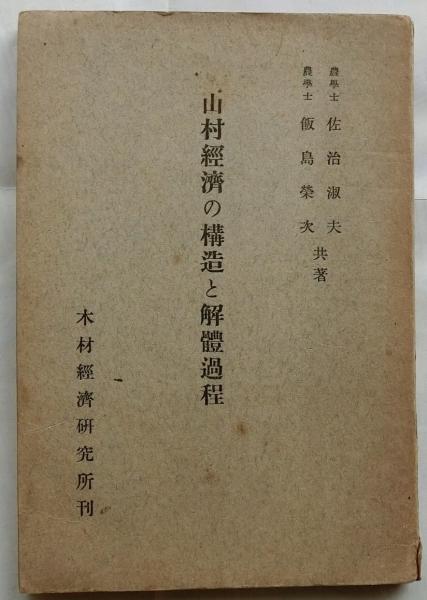 農學士 佐治淑夫
農學士 飯島榮次
共著
山村經濟の構造と解體過程
木材經濟研究所刊